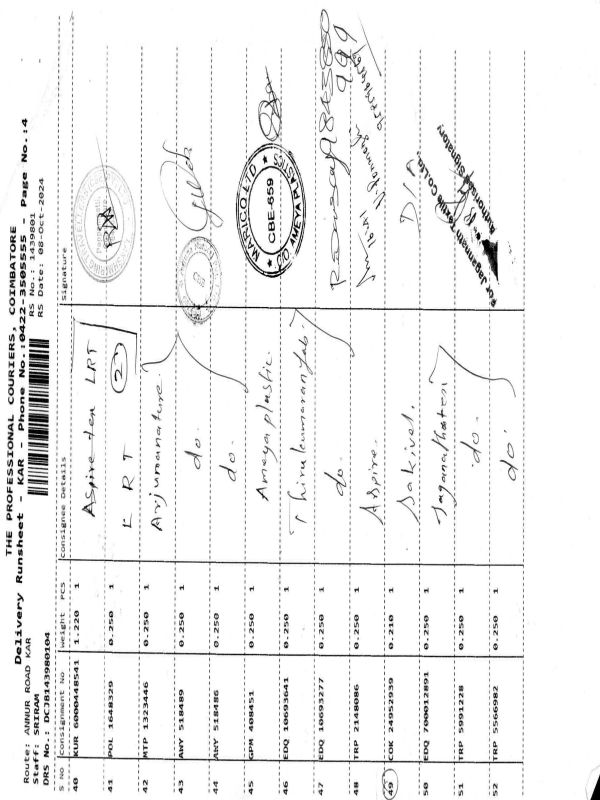 THE PROFESSIONAL COURIERS, COIMBATORE
Delivery Runsheet - KAR - Phone No.:0422-3505555 - Page No.:4
Route: ANNUR ROAD KAR
Staff: SRIRAM
DRS No.: DCJB143980104
RS No.: 1439801
RS Date: 08-Oct-2024
S No Consignment No Weight PCS Consignee Details Signature
40 KUR 6000448541 1.220 1 Aspire ten LRT
41 POL 1648329 0.250 1 LRT (2)
42 MTP 1323446 0.250 1 Arjumanature
43 ANY 518489 0.250 1 do.
44 ANY 518486 0.250 1 do.
45 GPM 408451 0.250 1 Ameya plastic. MARICO LTD CBE-659 C/O AMEYA PLASTICS
46 EDQ 10693641 0.250 1 Thirukumaran fab.
47 EDQ 10693277 0.250 1 do.
48 TRP 2148086 0.250 1 Aspire.
49 COK 24952939 0.210 1 Sakivel.
50 EDQ 700012891 0.250 1 Jaganathaten
51 TRP 5991228 0.250 1 do.
52 TRP 5566982 0.250 1 do.
For Jagannath Textile Co Ltd.,
Authorised Signatory